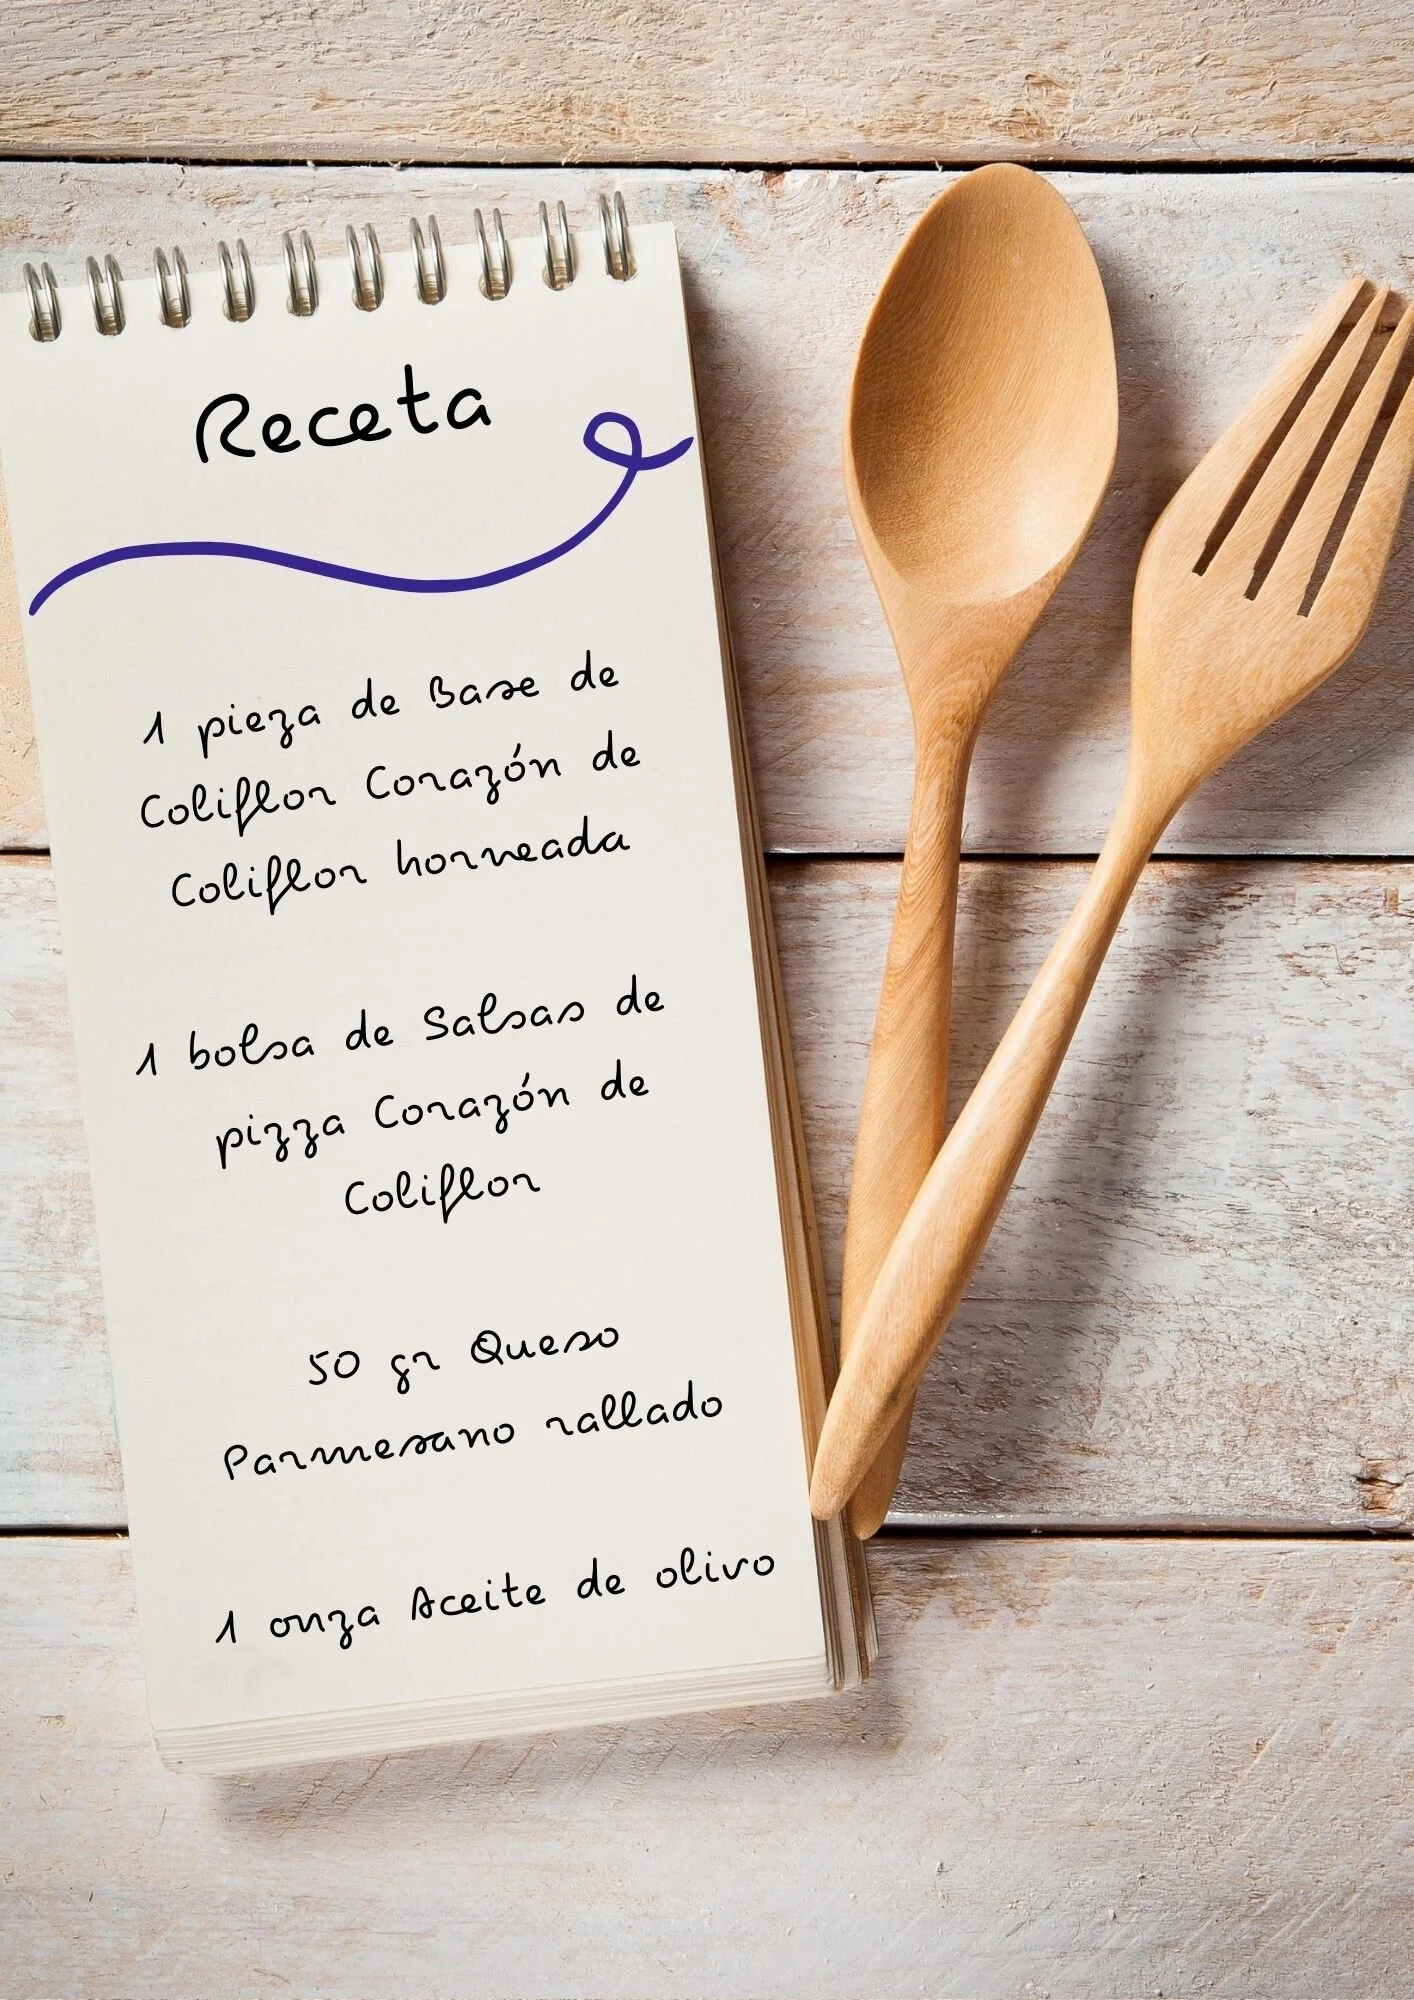 Receta
1 pieza de Base de
Coliflor Corazón de
Coliflor horneada
1 bolsa de Salsas de
pizza Corazón de
Coliflor
50 gr Queso
Parmesano rallado
1 onza Aceite de olivo